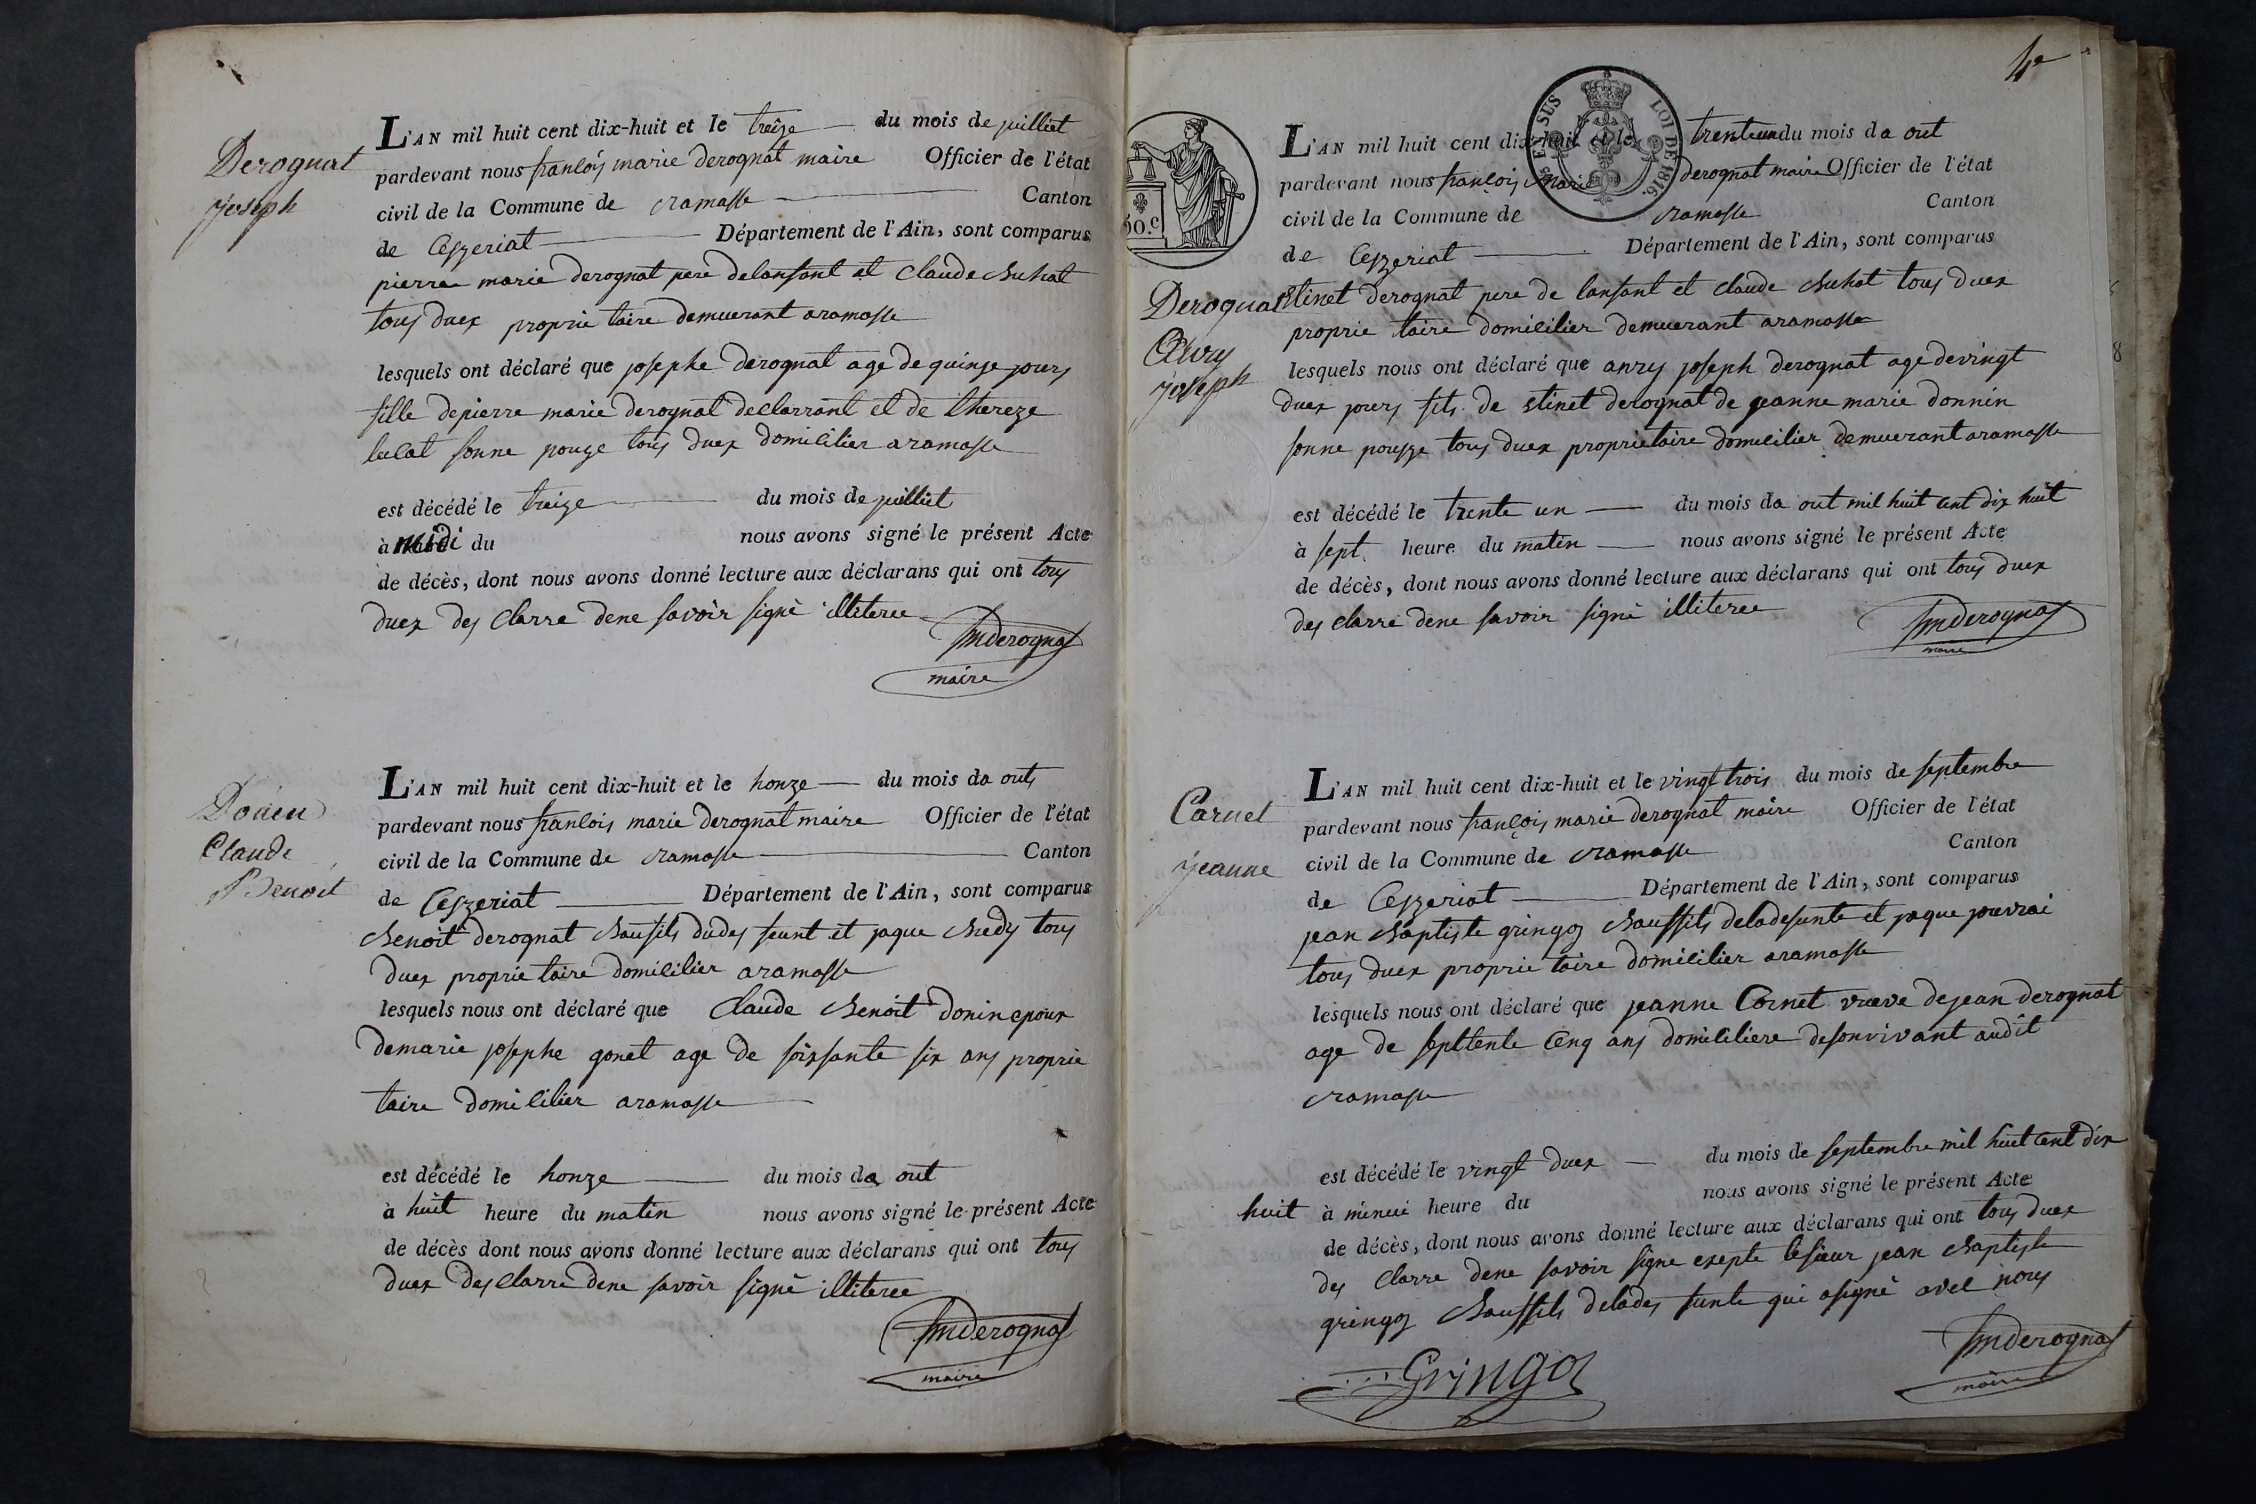 Derognat
Joseph
L'AN mil huit cent dix-huit et le treize du mois de juilliet
pardevant nous francois marie derognat maire Officier de l'état
civil de la Commune de ramasse Canton
de Ceyzeriat Département de l'Ain, sont comparus
pierre marie derognat pere delanfant et Claude Buhat
tous duex proprie taire demuerant aramasse
lesquels ont déclaré que josephe derognat age de quinze jours
fille depierre marie derognat declarrant et de thereze
lulat sonne pouze tous duex domicilier aramasse
est décédé le treize du mois de juilliet
à midi du nous avons signé le présent Acte
de décès, dont nous avons donné lecture aux déclarans qui ont tous
duex des clarre dene savoir signé illiteree
fmderognat
maire
Donin
Claude
Benoit
L'AN mil huit cent dix-huit et le honze du mois da out
pardevant nous francois marie derognat maire Officier de l'état
civil de la Commune de ramasse Canton
de Ceyzeriat Département de l'Ain, sont comparus
Benoit derognat Baufils dudes funt et jaque Bredy tous
duex proprie taire domicilier aramasse
lesquels nous ont déclaré que Claude Benoit donin epoux
demarie josephe gonet age de soixsante six ans proprie
taire domicilier aramasse
est décédé le honze du mois da out
à huit heure du matin nous avons signé le présent Acte
de décès dont nous avons donné lecture aux déclarans qui ont tous
duex des clarre dene savoir signé illiteree
fmderognat
maire
4e
50.C
SUS
LOI DE 1816.
L'AN mil huit cent dix-huit et le trente un du mois da out
pardevant nous françois marie derognat maire Officier de l'état
civil de la Commune de ramasse Canton
de Ceyzeriat Département de l'Ain, sont comparus
Derognat
Anry
Joseph
Etinet derognat pere de lanfant et claude Buhat tous duex
proprie taire domicilier demuerant aramasse
lesquels nous ont déclaré que anry joseph derognat age devingt
duex jours fils de etinet derognat de jeanne marie donnin
sonne pousze tous duex proprietaire domicilier demuerant aramasse
est décédé le trente un du mois da out mil huit cent dix huit
à sept heure du matin nous avons signé le présent Acte
de décès, dont nous avons donné lecture aux déclarans qui ont tous duex
des clarre dene savoir signé illiteree
fmderognat
maire
Carnet
Jeanne
L'AN mil huit cent dix-huit et le vingt trois du mois de septembre
pardevant nous françois marie derognat maire Officier de l'état
civil de la Commune de ramasse Canton
de Ceyzeriat Département de l'Ain, sont comparus
jean Baptiste gringoz Bauffils deladefunte et jaque jouvrai
tous duex proprie taire domicilier aramasse
lesquels nous ont déclaré que jeanne Cornet vueve dejean derognat
age de septtente Cenq ans domiciliere desonvivant audit
ramasse
est décédé le vingt duex du mois de septembre mil huit cent dix
huit à minui heure du nous avons signé le présent Acte
de décès, dont nous avons donné lecture aux déclarans qui ont tous duex
des clarre dene savoir signe exepte lesieur jean Baptiste
gringoz Bauffils delades funte qui asigné avec nous
Gringoz
fmderognat
maire